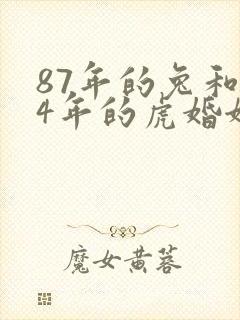 87年的兔和
4年的虎婚姻
魔女黄蓉